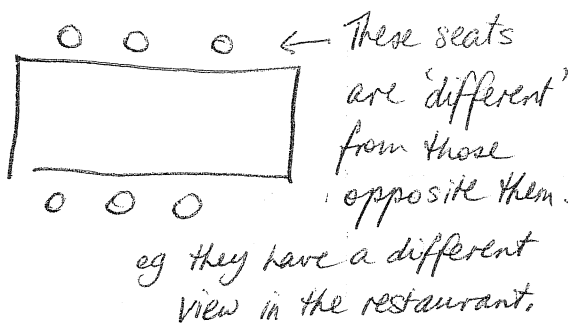 These seats
are 'different'
from those
opposite them.
eg they have a different
view in the restaurant.